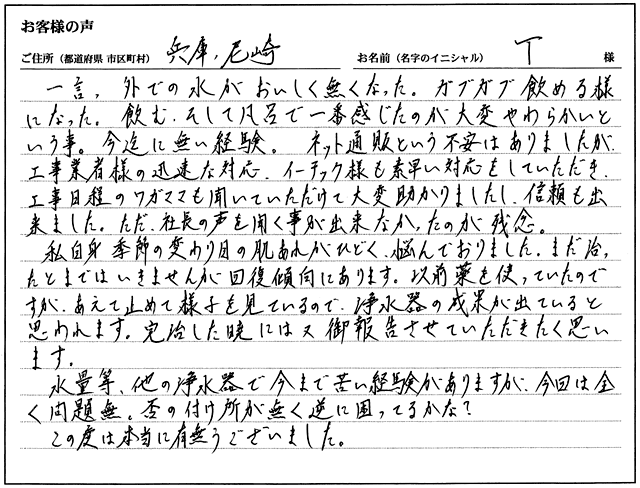 お客様の声
ご住所（都道府県 市区町村） 兵庫、尼崎 お名前（名字のイニシャル） T 様
一言、外での水がおいしく無くなった。ガブガブ飲める様
になった。飲む、そして風呂で一番感じたのが大変やわらかいと
いう事。今迄に無い経験。 ネット通販という不安はありましたが、
工事業者様の迅速な対応、イーテック様も素早い対応をしていただき、
工事日程のワガママも聞いていただけて大変助かりましたし、信頼も出
来ました。ただ、社長の声を聞く事が出来なかったのが残念。
私自身 季節の変わり目の肌あれがひどく、悩んでおりました。まだ治っ
たとまではいきませんが回復傾向にあります。以前薬を使っていたので
すが、あえて止めて様子を見ているので、浄水器の成果が出ていると
思われます。完治した暁には又御報告させていただきたく思い
ます。
水量等、他の浄水器で今まで苦い経験がありますが、今回は全
く問題無。否の付け所が無く逆に困ってるかな？
この度は本当に有難うございました。